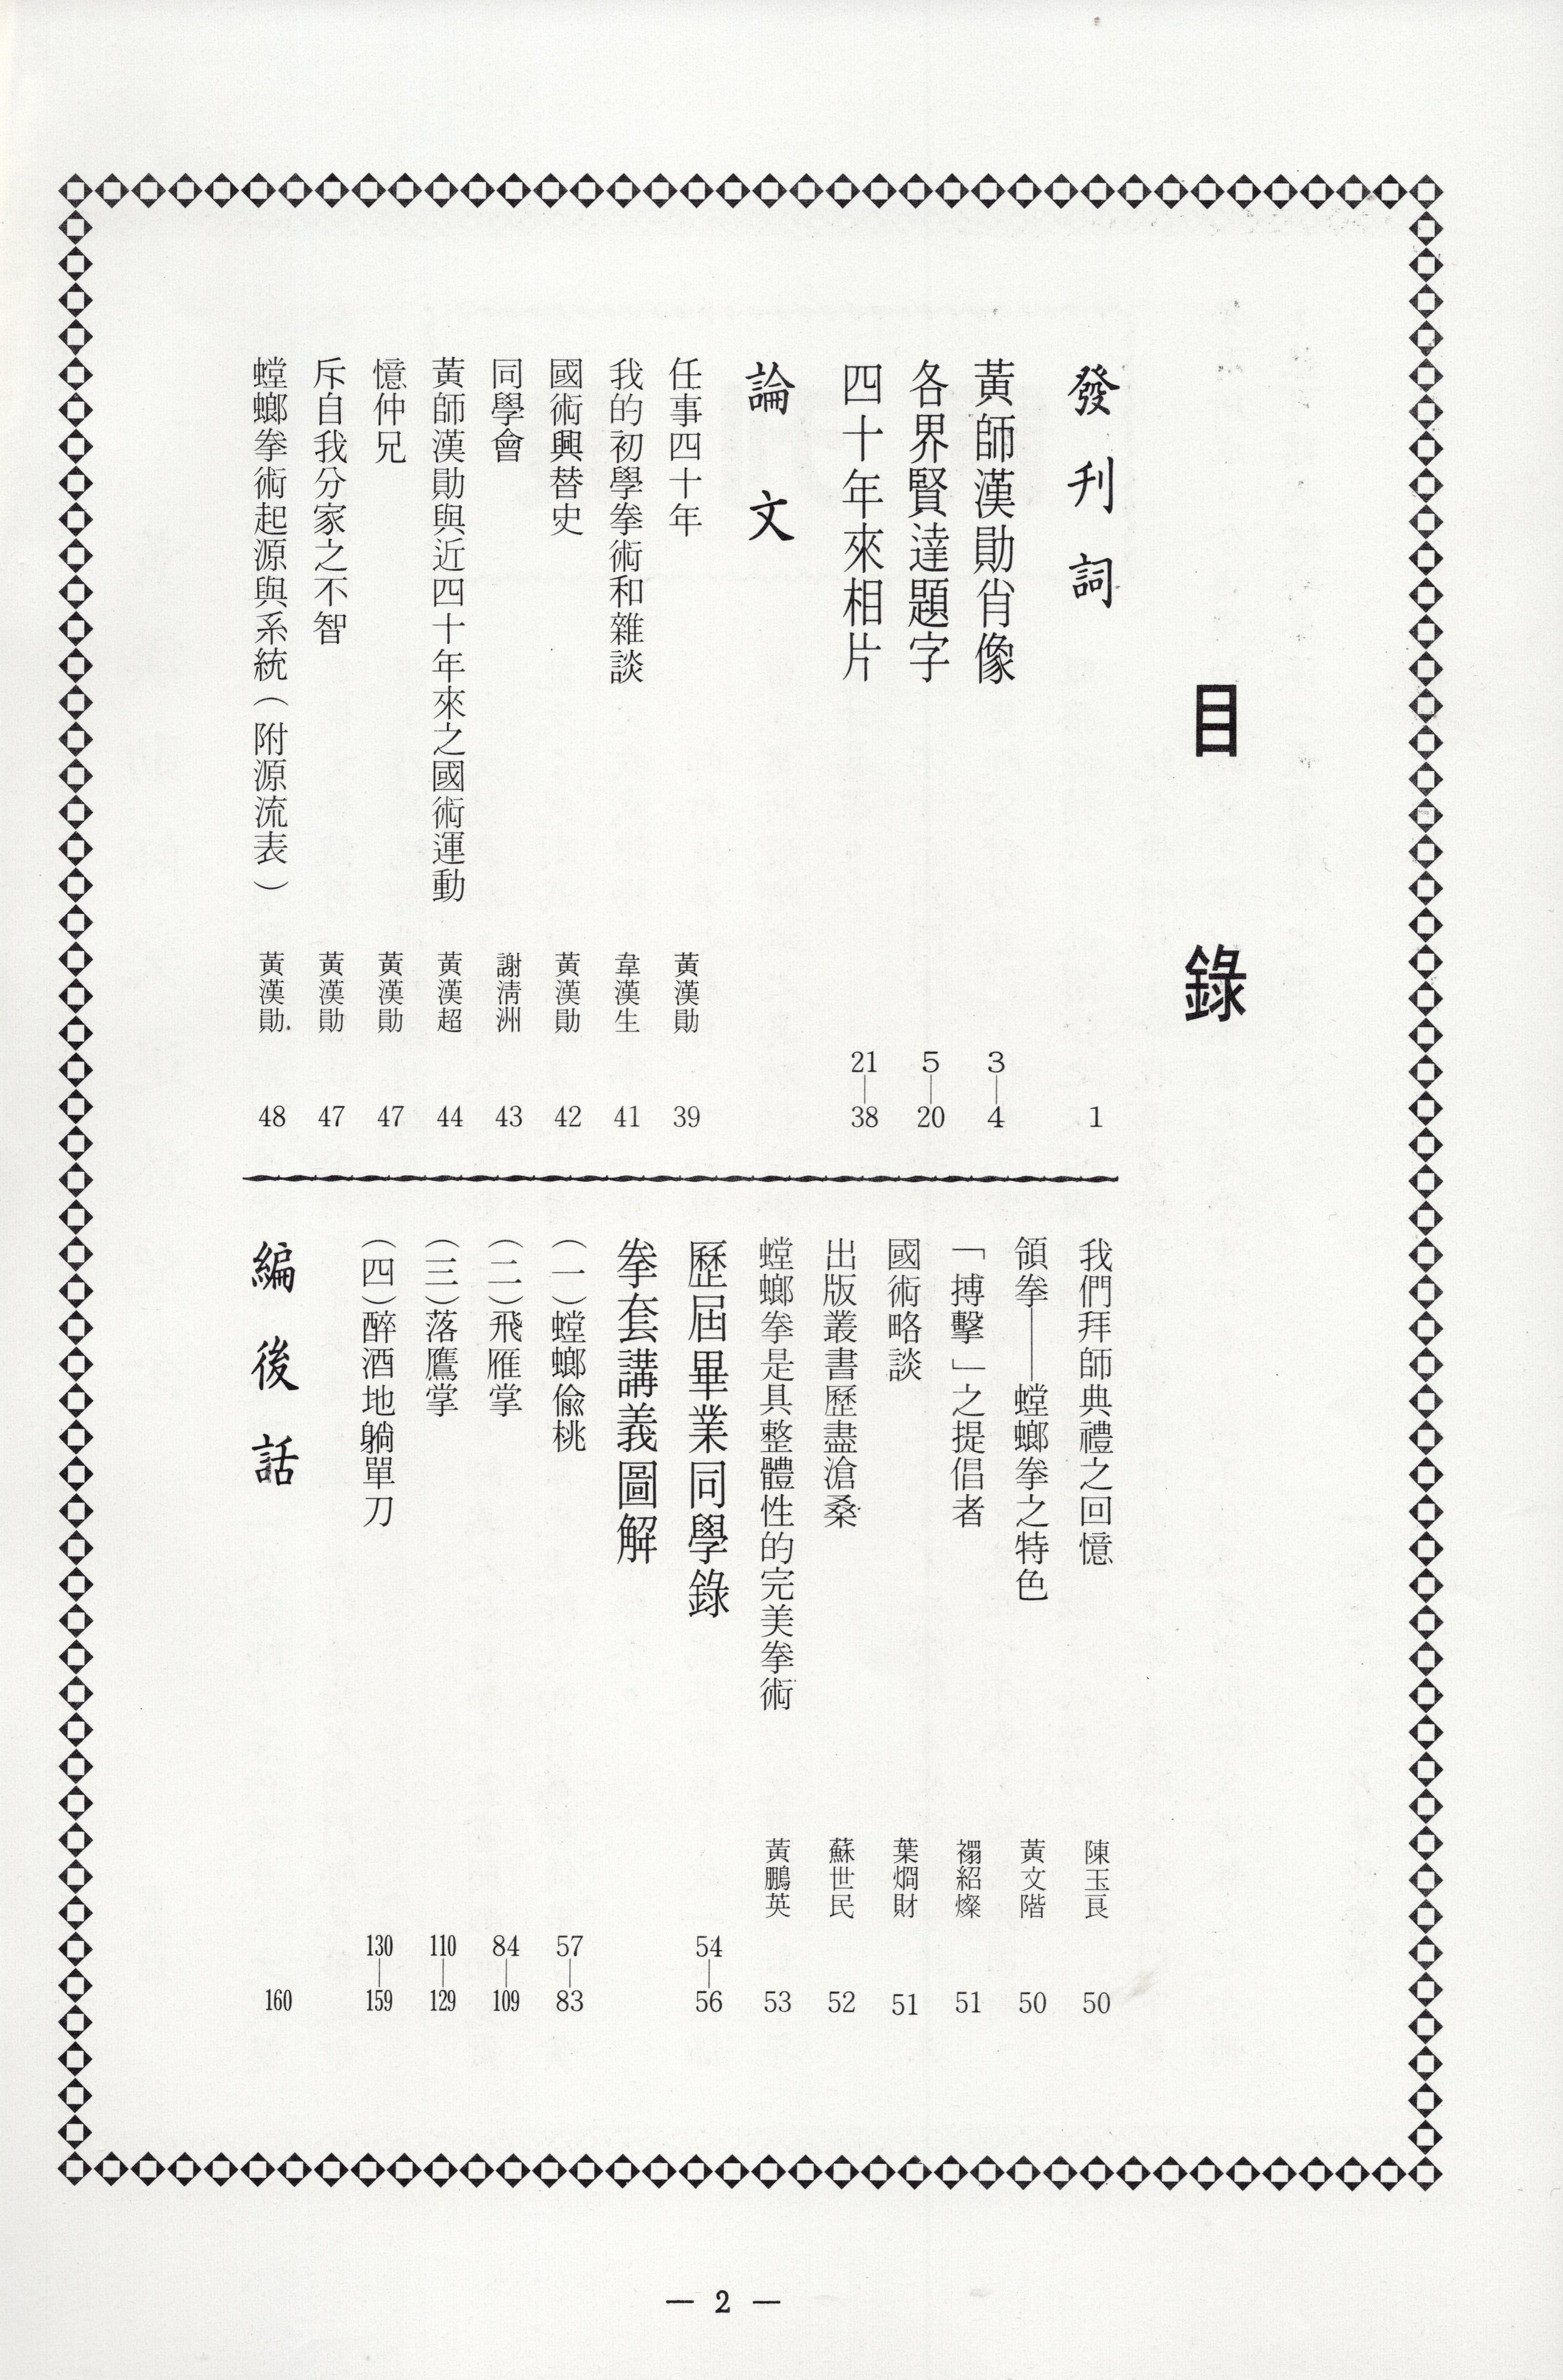 目錄
發刊詞 1
黃師漢勛肖像 3—4
各界賢達題字 5—20
四十年來相片 21—38
論文
任事四十年 黃漢勛 39
我的初學拳術和雜談 韋漢生 41
國術興替史 黃漢勛 42
同學會 謝淸洲 43
黃師漢勛與近四十年來之國術運動 黃漢超 44
憶仲兄 黃漢勛 47
斥自我分家之不智 黃漢勛 47
螳螂拳術起源與系統（附源流表） 黃漢勛 48
我們拜師典禮之回憶 陳玉良 50
領拳——螳螂拳之特色 黃文階 50
「搏擊」之提倡者 禤紹燦 51
國術略談 葉焵財 51
出版叢書歷盡滄桑 蘇世民 52
螳螂拳是具整體性的完美拳術 黃鵬英 53
歷屆畢業同學錄 54—56
拳套講義圖解
（一）螳螂偸桃 57—83
（二）飛雁掌 84—109
（三）落鷹掌 110—129
（四）醉酒地躺單刀 130—159
編後話 160
— 2 —